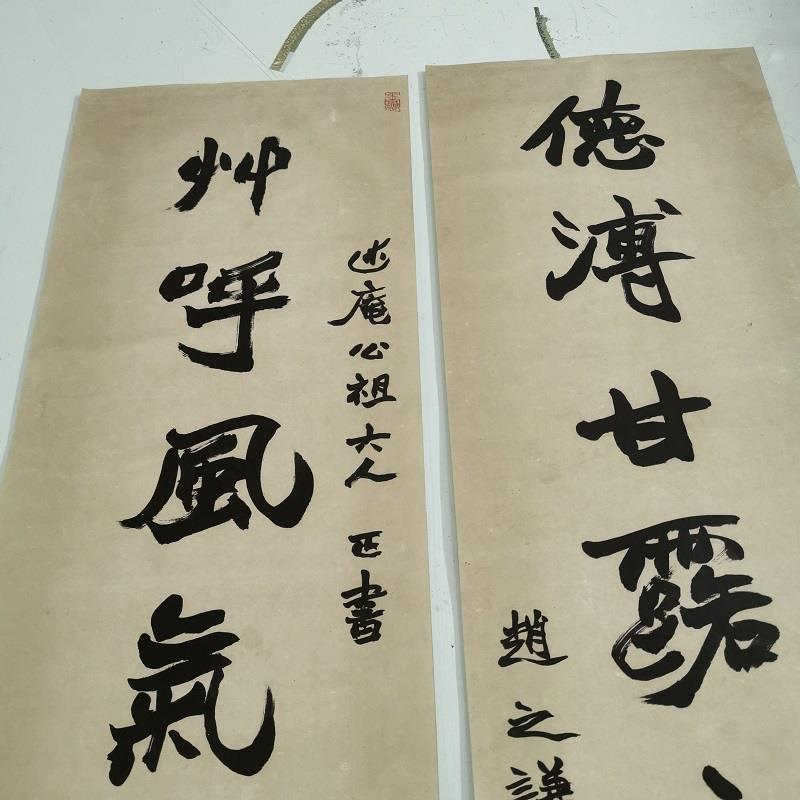 德溥甘露
趙之謙
述庵公祖大人 正書
艸呼風氣